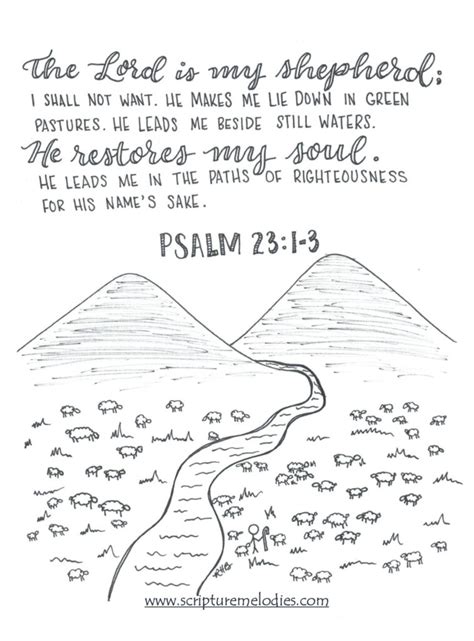 The Lord is my shepherd;
I SHALL NOT WANT. HE MAKES ME LIE DOWN IN GREEN
PASTURES. HE LEADS ME BESIDE STILL WATERS.
He restores my soul.
HE LEADS ME IN THE PATHS OF RIGHTEOUSNESS
FOR HIS NAME'S SAKE.
PSALM 23:1-3
www.scripturemelodies.com